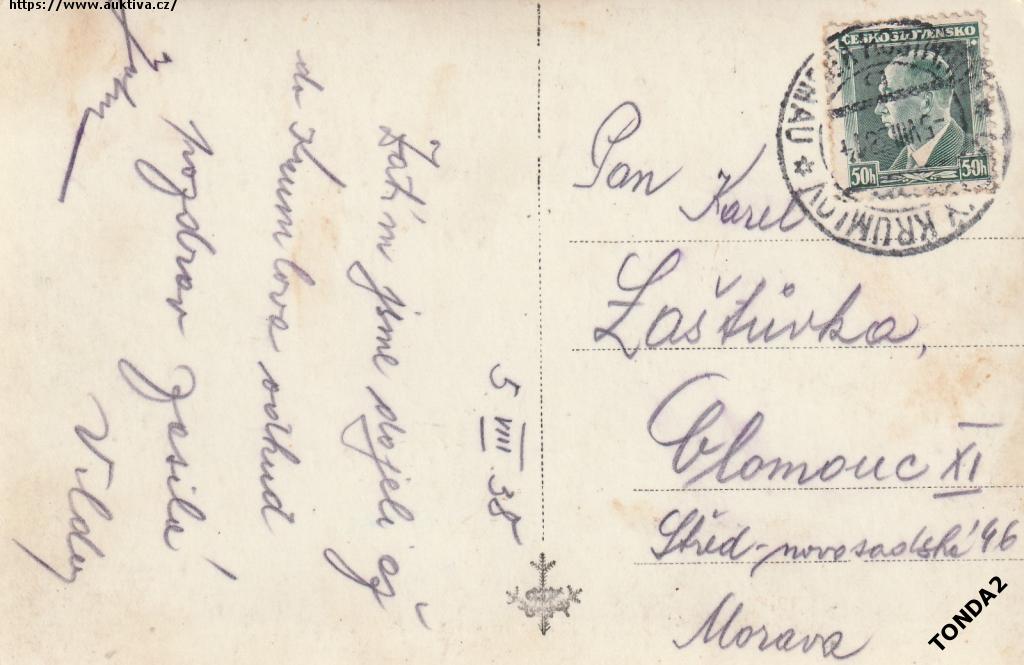 https://www.auktiva.cz/
5 VIII 38
Zatím jsme dojeli až
do Krumlova odkud
pozdrav zasílá
Vilda
ČESKOSLOVENSKO
50h 50h
KRUMLOV
UMAU
Pan Karel
Zaštůvka,
Olomouc XI
Střed-novosadská 46
Morava
TONDA2